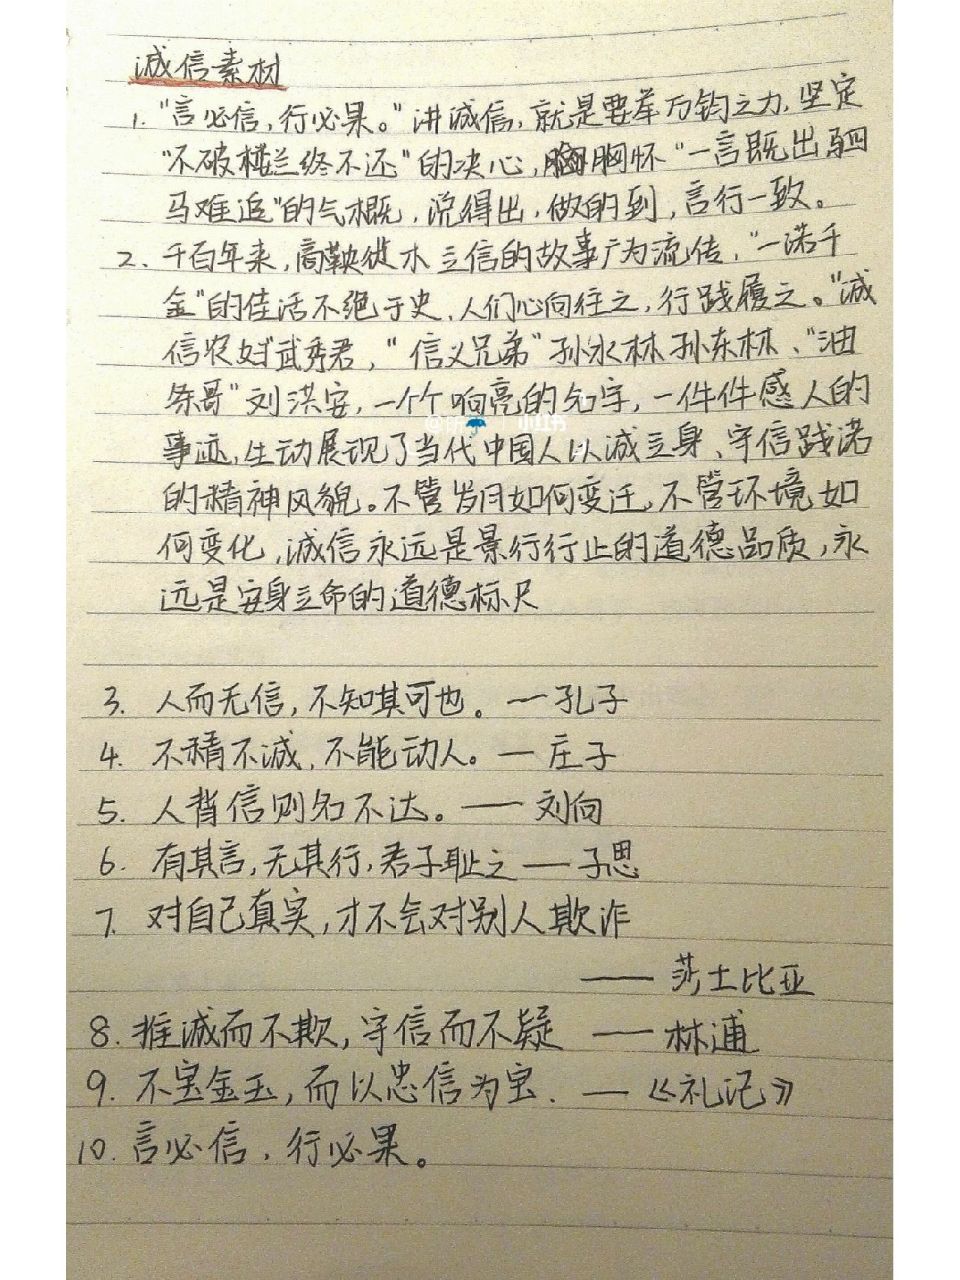 诚信素材
1. "言必信，行必果。"讲诚信，就是要举万钧之力，坚定
"不破楼兰终不还"的决心，胸怀"一言既出驷
马难追"的气概，说得出，做的到，言行一致。
2、千百年来，商鞅徙木立信的故事广为流传，"一诺千
金"的佳话不绝于史、人们心向往之，行践履之。"诚
信农妇"武秀君，"信义兄弟"孙水林孙东林、"油
条哥"刘洪安，一个个响亮的名字，一件件感人的
事迹，生动展现了当代中国人以诚立身、守信践诺
的精神风貌。不管岁月如何变迁，不管环境如
何变化，诚信永远是景行行止的道德品质，永
远是安身立命的道德标尺
3. 人而无信，不知其可也。一孔子
4. 不精不诚，不能动人。一庄子
5. 人背信则名不达。——刘向
6. 有其言，无其行，君子耻之——子思
7. 对自己真实，才不会对别人欺诈
——莎士比亚
8. 推诚而不欺，守信而不疑 ——林逋
9. 不宝金玉，而以忠信为宝. —《礼记》
10. 言必信，行必果。
小红书